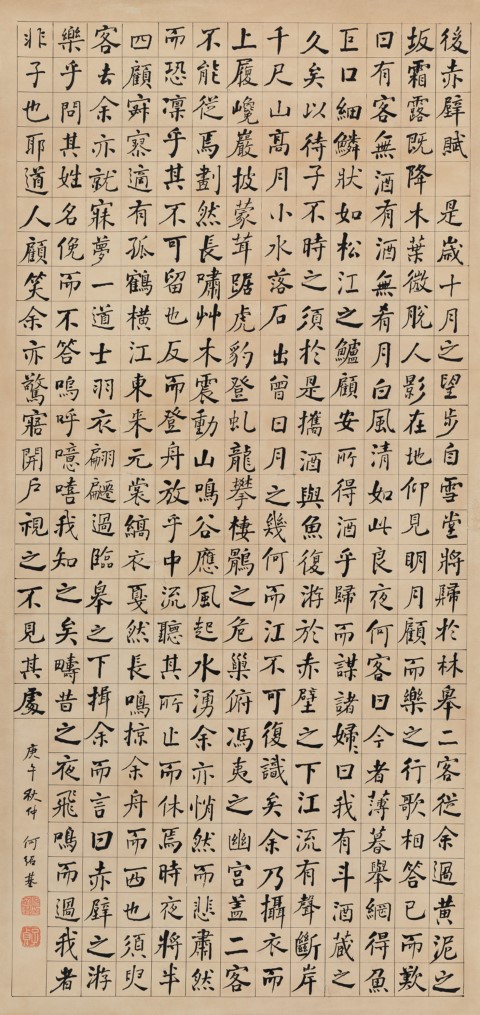 後赤壁賦 是歲十月之望步自雪堂將歸於林臯二客從余過黃泥之
坂霜露既降木葉微脫人影在地仰見明月顧而樂之行歌相答已而歎
曰有客無酒有酒無肴月白風清如此良夜何客曰今者薄暮舉網得魚
巨口細鱗狀如松江之鱸顧安所得酒乎歸而謀諸婦曰我有斗酒藏之
久矣以待子不時之須於是攜酒與魚復游於赤壁之下江流有聲斷岸
千尺山高月小水落石出曾日月之幾何而江不可復識矣余乃攝衣而
上履巉巖披蒙茸踞虎豹登虬龍攀棲鶻之危巢俯馮夷之幽宮蓋二客
不能從焉劃然長嘯艸木震動山鳴谷應風起水湧余亦悄然而悲肅然
而恐凜乎其不可留也反而登舟放乎中流聽其所止而休焉時夜將半
四顧寂寥適有孤鶴橫江東來元裳縞衣戛然長鳴掠余舟而西也須臾
客去余亦就寐夢一道士羽衣翩躚過臨臯之下揖余而言曰赤壁之游
樂乎問其姓名俛而不答嗚呼噫嘻我知之矣疇昔之夜飛鳴而過我者
非子也耶道人顧笑余亦驚寤開戶視之不見其處
庚午秋仲 何紹基